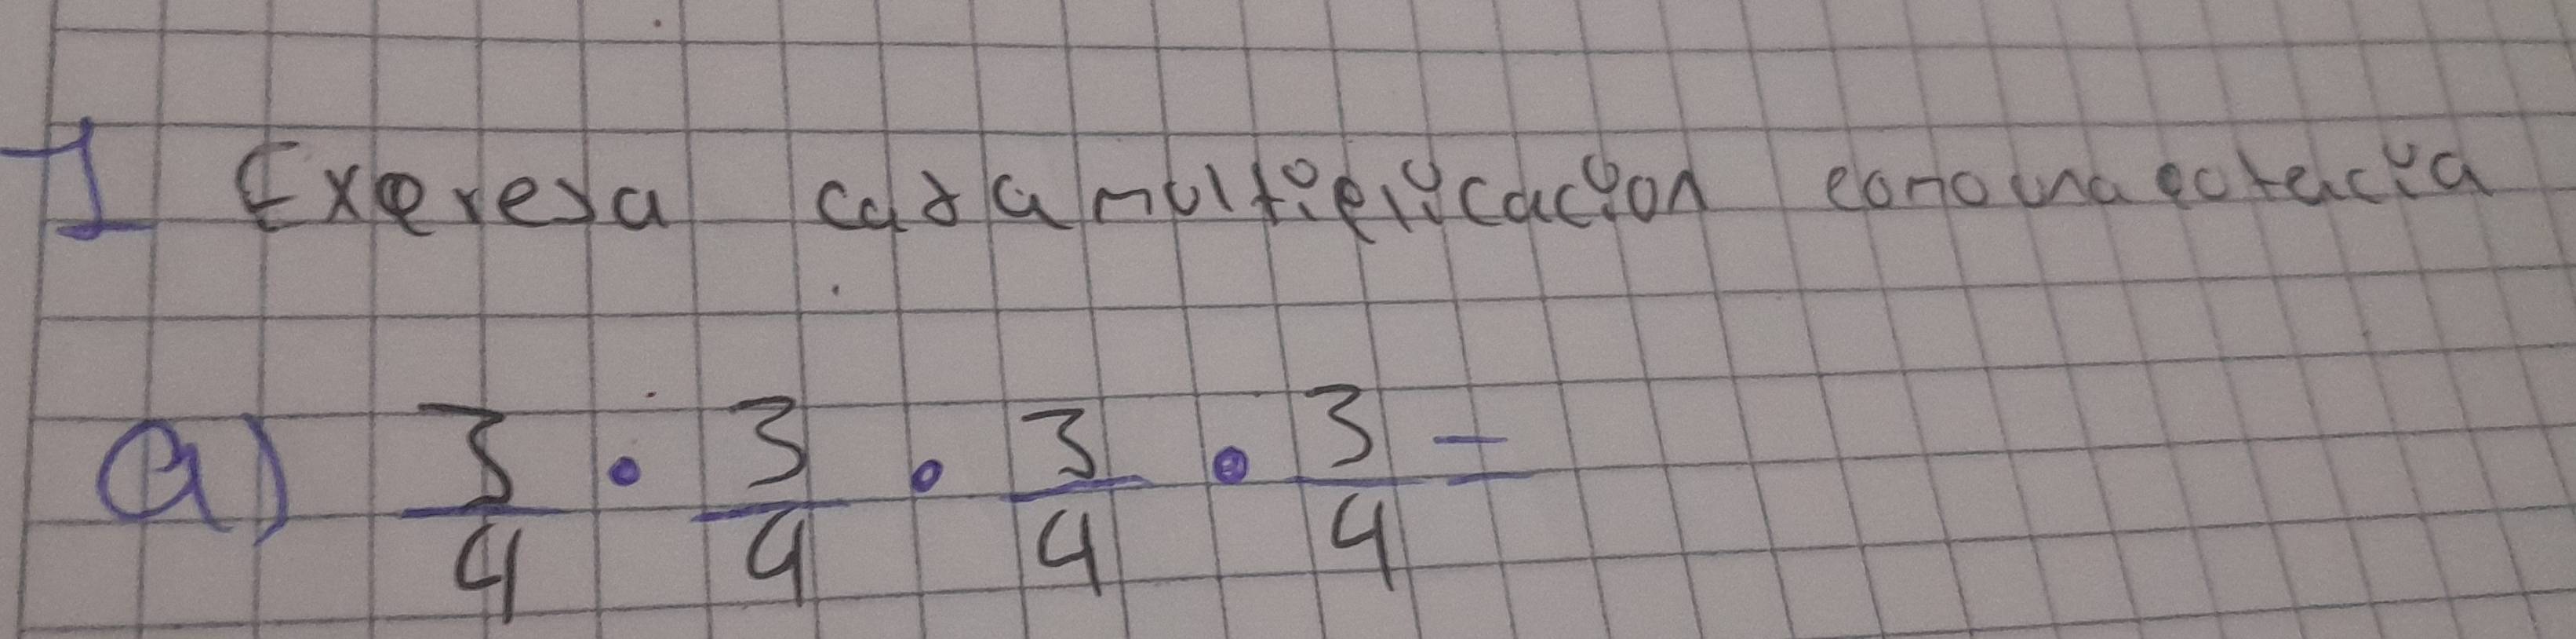 1 Expresa cada multiplicacion como una potencia
a) 3/4 · 3/4 · 3/4 · 3/4 =